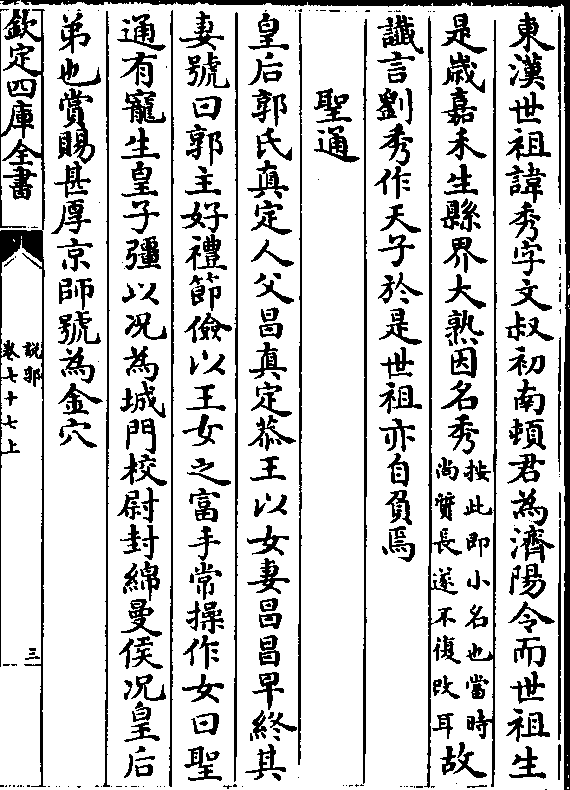 東漢世祖諱秀字文叔初南頓君為濟陽令而世祖生
是歲嘉禾生縣界大熟因名秀按此即小名也當時尚質長遂不復改耳故
讖言劉秀作天子於是世祖亦自負焉
聖通
皇后郭氏真定人父昌真定恭王以女妻昌昌早終其
妻號曰郭主好禮節儉以王女之富手常操作女曰聖
通有寵生皇子彊以况為城門校尉封綿曼侯况皇后
弟也賞賜甚厚京師號為金穴
欽定四庫全書
說郛
卷七十七上
三